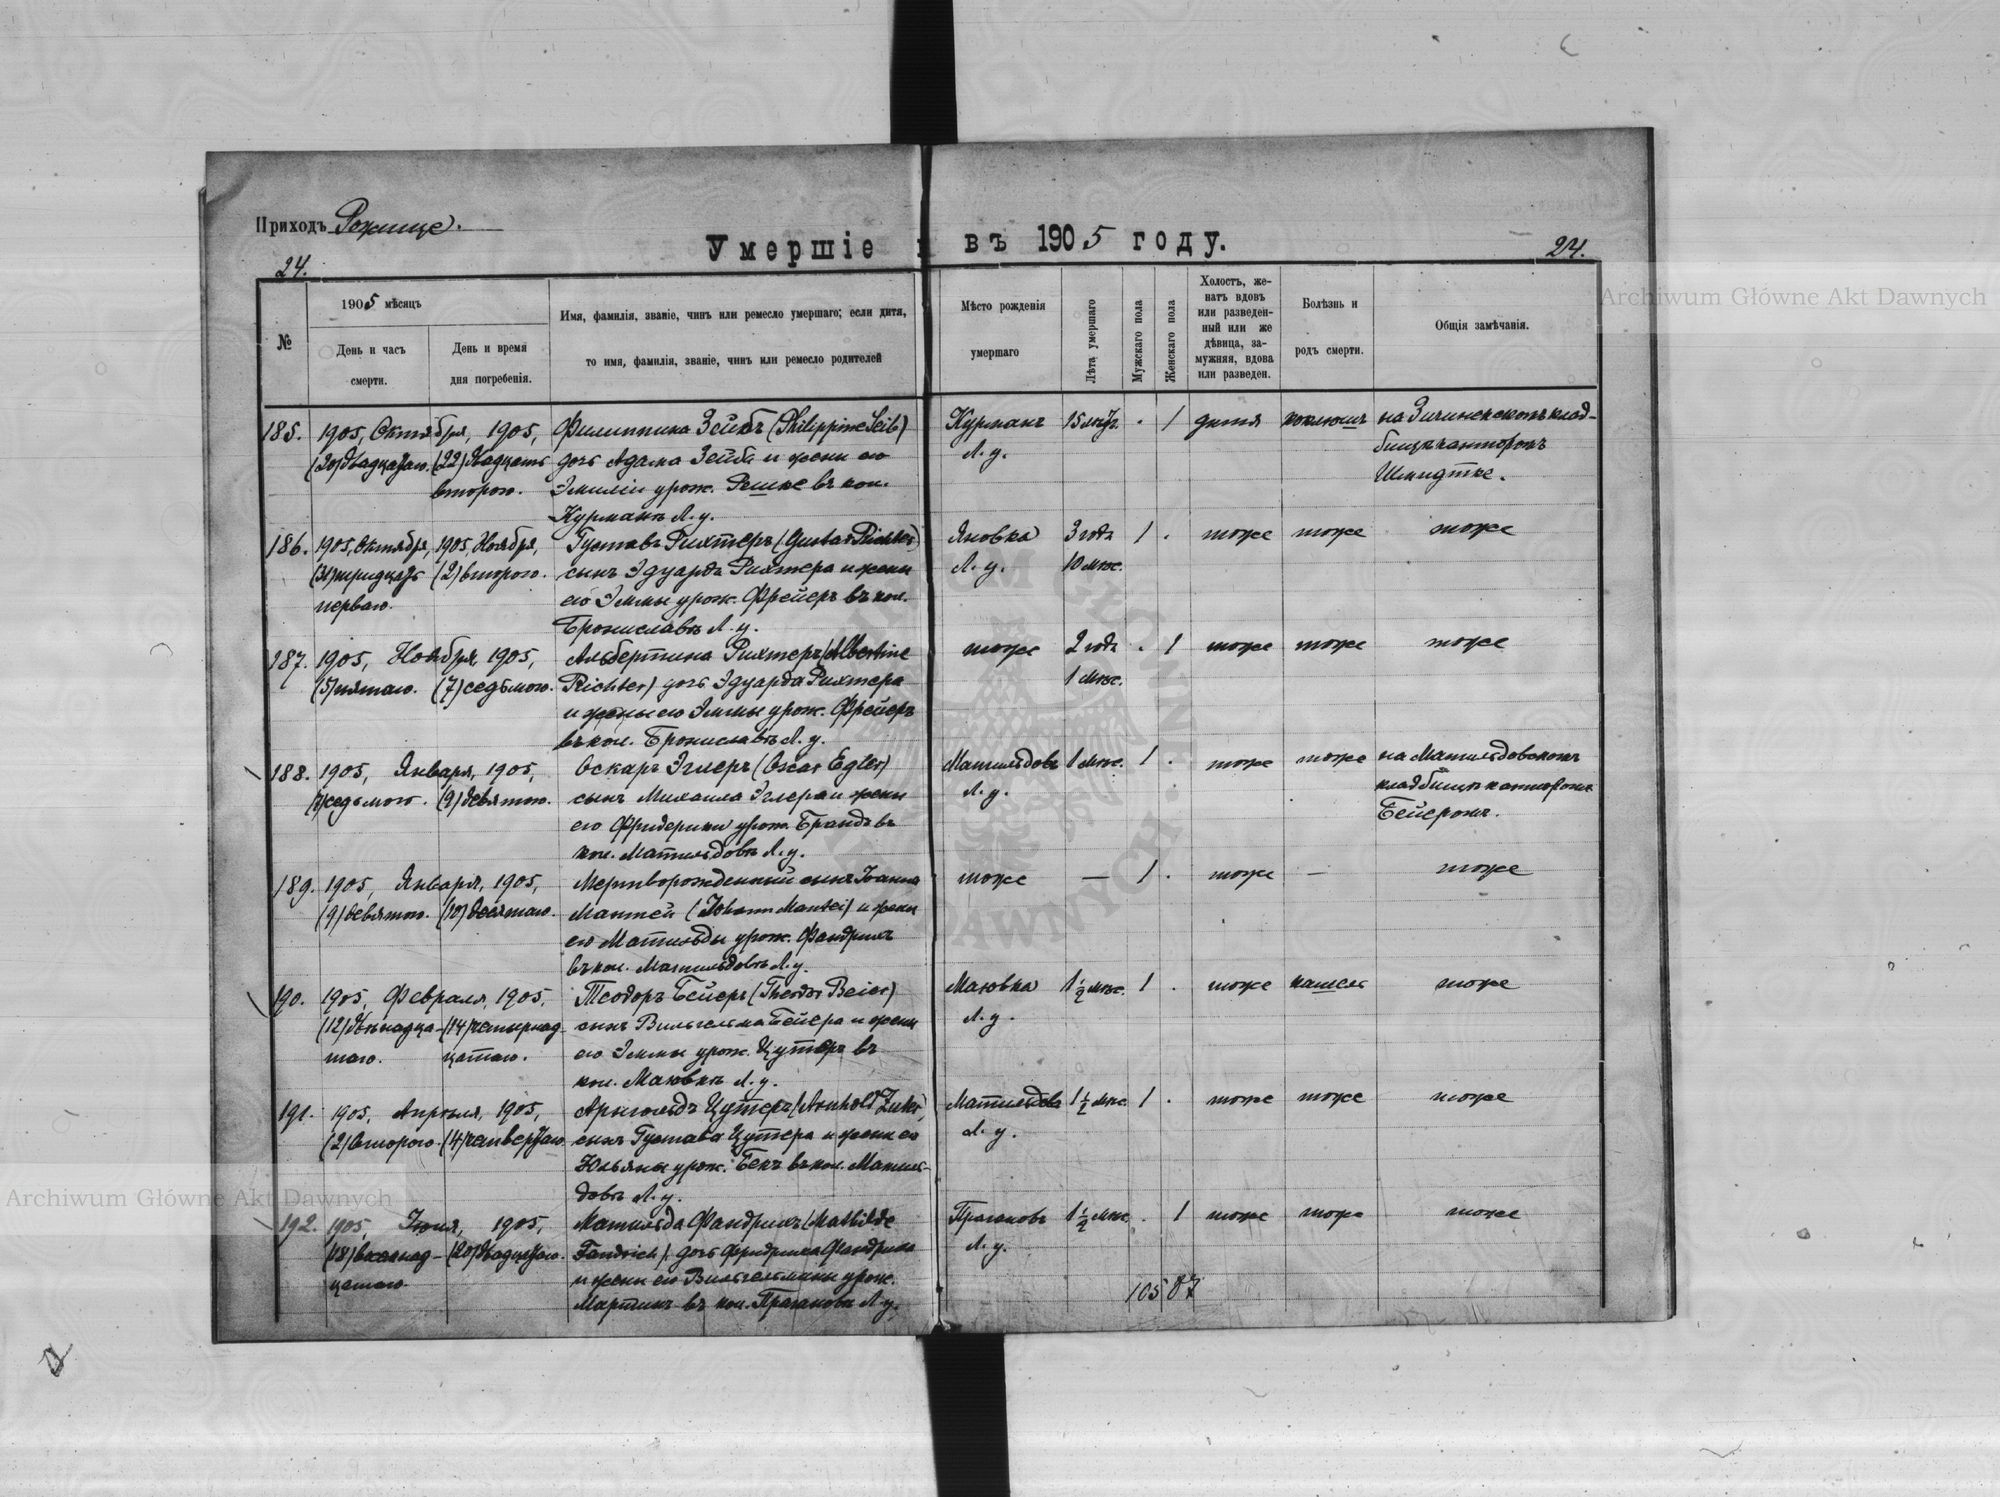 Приходъ Рожище.
Умершіе въ 1905 году.
24.
24.
№
1905 мѣсяцъ
День и часъ
смерти.
День и время
дня погребенія.
Имя, фамилія, званіе, чинъ или ремесло умершаго; если дитя,
то имя, фамилія, званіе, чинъ или ремесло родителей
Мѣсто рожденія
умершаго
Лѣта умершаго
Мужскаго пола
Женскаго пола
Холостъ, же-
натъ вдовъ
или разведен-
ный или же
дѣвица, за-
мужняя, вдова
или разведен.
Болѣзнь и
родъ смерти.
Общія замѣчанія.
185. 1905, Октября, 1905, Филиппина Зейбъ (Philippine Seib) Курманъ 15 . 1 дитя коклюшъ на клад-
(20) двадцатаго. (22) двадцать дочь Адама Зейба и жены его Л. у. бищѣ канторомъ
второго. Эмиліи урож. Решке въ кол. Шмидтке.
Курманъ Л. у.
186. 1905, Октября, 1905, Ноября, Густавъ Рихтеръ (Gustav Richter) Яновка 3 года 1 . тоже тоже тоже
(31) тридцать (2) второго. сынъ Эдуарда Рихтера и жены Л. у. 10 мѣс.
перваго. его Эммы урож. Фрейеръ въ кол.
Брониславъ Л. у.
187. 1905, Ноября, 1905, Альбертина Рихтеръ (Albertine тоже 2 года . 1 тоже тоже тоже
(5) пятаго. (7) седьмого. Richter) дочь Эдуарда Рихтера 1 мѣс.
и жены его Эммы урож. Фрейеръ
въ кол. Брониславъ Л. у.
188. 1905, Января, 1905, Оскаръ Эглеръ (Oscar Egler) Матильдовъ 1 мѣс. 1 . тоже тоже на Матильдовскомъ
(7) седьмого. (9) девятого. сынъ Михаила Эглера и жены Л. у. кладбищѣ канторомъ
его Фридерики урож. Брандъ въ Бейеромъ.
кол. Матильдовъ Л. у.
189. 1905, Января, 1905, Мертворожденный сынъ Іоанна тоже — 1 . тоже — тоже
(9) девятого. (10) десятаго. Мантей (Johann Mantei) и жены
его Матильды урож. Фандрихъ
въ кол. Матильдовъ Л. у.
190. 1905, Февраля, 1905, Теодоръ Бейеръ (Theodor Beier) Маювка 1 1/2 мѣс. 1 . тоже кашель тоже
(12) двѣнадца- (14) четырнад- сынъ Вильгельма Бейера и жены Л. у.
таго. цатаго. его Эммы урож. Цутеръ въ
кол. Маювкѣ Л. у.
191. 1905, Апрѣля, 1905, Арнольдъ Цутеръ (Arnhold Zuter) Матильдовъ 1 1/2 мѣс 1 . тоже тоже тоже
(2) второго. (4) четвертаго. сынъ Густава Цутера и жены его Л. у.
Юльяны урож. Бекъ въ кол. Матиль-
довъ Л. у.
192. 1905, Іюня, 1905, Матильда Фандрихъ (Mathilde 1 1/2 мѣс. . 1 тоже тоже тоже
(18) восемнад- (20) двадцатаго. Fandrich) дочь Фридриха Фандриха Л. у.
цатаго. и жены его Вильгельмины урож.
Мартинъ въ кол. Л. у.
105 87
Archiwum Główne Akt Dawnych
Archiwum Główne Akt Dawnych